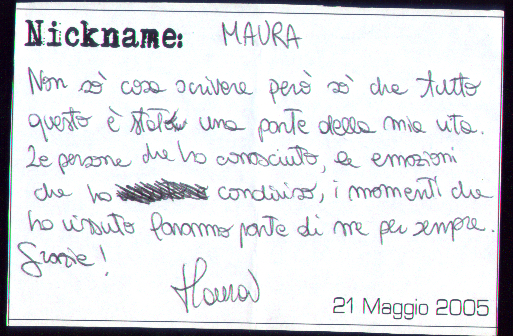 Nickname: MAURA
Non sò cosa scrivere però sò che tutto
questo è stato una parte della mia vita.
Le persone che ho conosciuto, le emozioni
che ho condiviso, i momenti che
ho vissuto faranno parte di me per sempre.
Grazie!
Maura
21 Maggio 2005